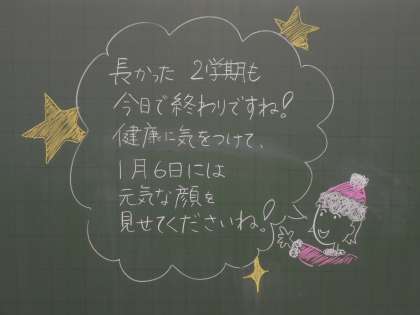 長かった 2学期も
今日で終わりですね!
健康に気をつけて、
1月6日には
元気な顔を
見せてくださいね!